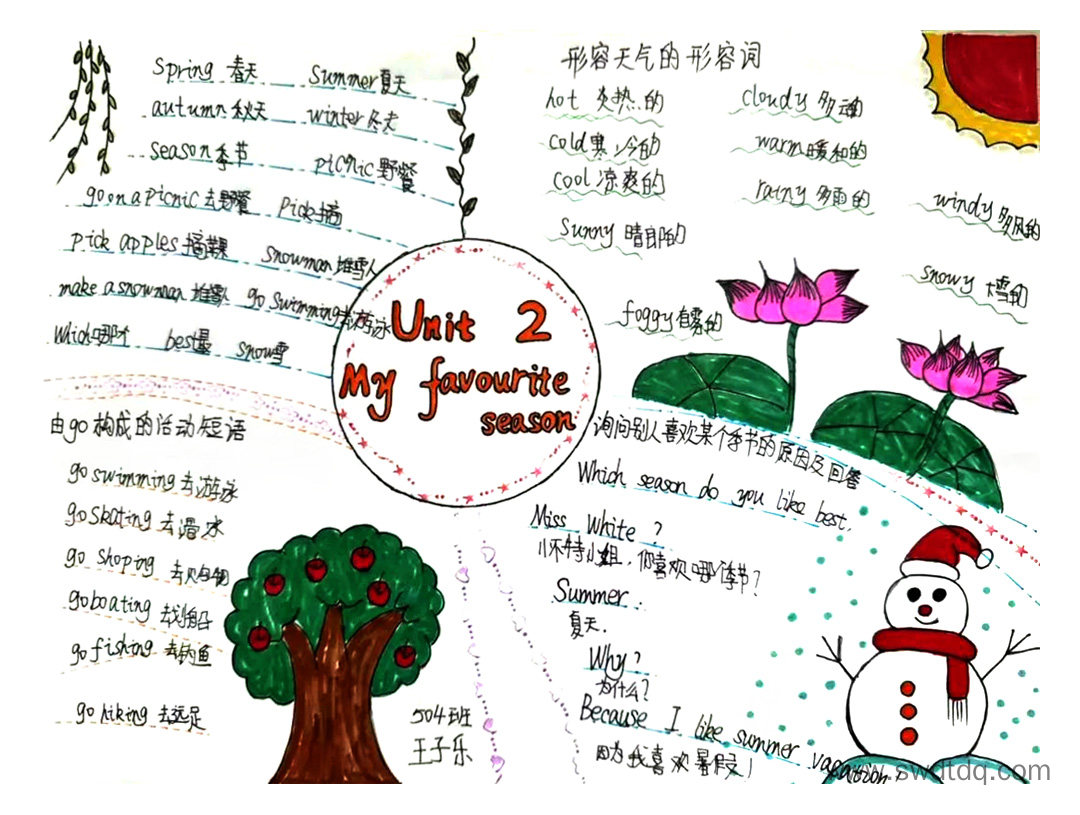 spring 春天 summer 夏天
autumn 秋天 winter 冬天
season 季节 picnic 野餐
go on a picnic 去野餐 pick 摘
pick apples 摘苹果 snowman 堆雪人
make a snowman 堆雪人 go swimming 去游泳
Which 哪个 best 最 snow 雪
由go构成的活动短语
go swimming 去游泳
go skating 去滑冰
go shoping 去购物
go boating 去划船
go fishing 去钓鱼
go hiking 去远足
504班
王子乐
Unit 2
My favourite
season
形容天气的形容词
hot 炎热的 cloudy 多云的
cold 寒冷的 warm 暖和的
cool 凉爽的 rainy 多雨的 windy 多风的
sunny 晴朗的 snowy 大雪的
foggy 有雾的
询问别人喜欢某个季节的原因及回答
Which season do you like best.
Miss White ?
怀特小姐,你喜欢哪个季节?
Summer.
夏天.
Why?
为什么?
Because I like summer vacation!
因为我喜欢暑假!
www.swdtdq.com